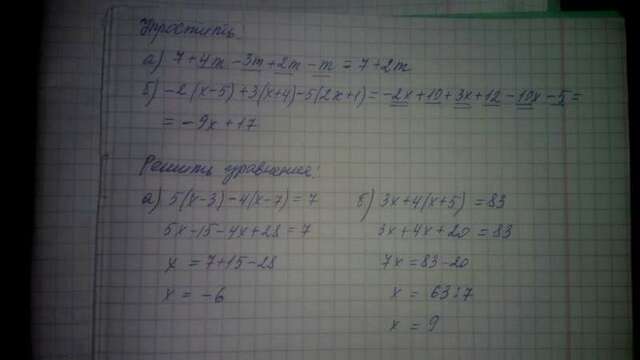 Упростить
а) 7+4m-3m+2m-m = 7+2m
б) -2(x-5)+3(x+4)-5(2x+1) = -2x+10+3x+12-10x-5 =
= -9x+17
Решить уравнение:
а) 5(x-3)-4(x-7) = 7
5x-15-4x+28 = 7
x = 7+15-28
x = -6
б) 3x+4(x+5) = 83
3x+4x+20 = 83
7x = 83-20
x = 63:7
x = 9